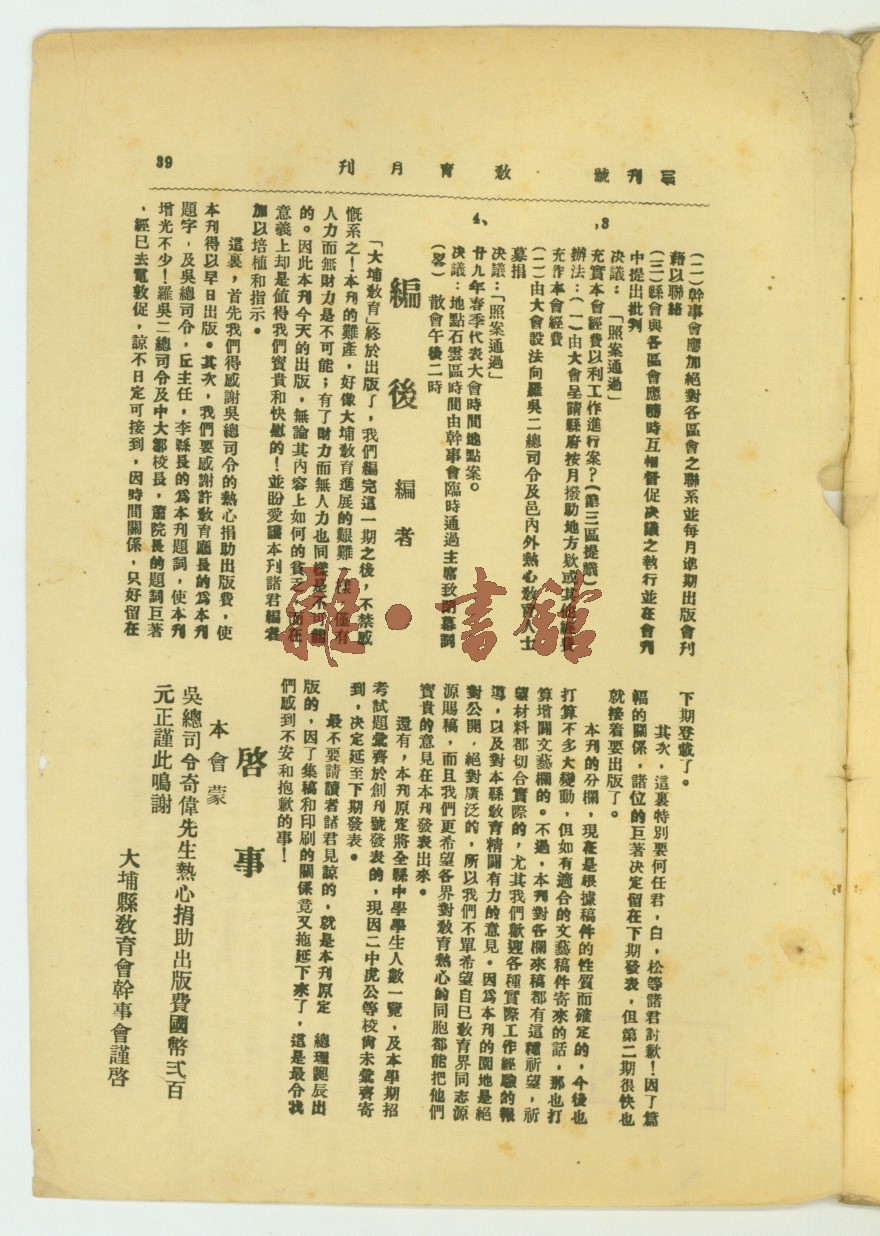 刊號
教育月刊
39
(二)幹事會應加絕對各區會之聯系並每月準期出版會刊
藉以聯絡
(三)縣會與各區會應隨時互相督促決議之執行並在會刊
中提出批判
決議:「照案通過」
3,
充實本會經費以利工作進行案?(第三區提議)
辦法:(一)由大會呈請縣府按月撥助地方欵或其他經費
充作本會經費
(二)由大會設法向羅吳二總司令及邑內外熱心教育人士
募捐
決議:「照案通過」
4、
廿九年春季代表大會時間地點案。
決議:地點石雲區時間由幹事會臨時通過主席致閉幕詞
(畧) 散會午後二時
編後
編者
「大埔教育」終於出版了,我們編完這一期之後,不禁感
慨系之!本刊的難產,好像大埔教育進展的艱難一樣,僅有
人力而無財力是不可能;有了財力而無人力也同樣是不可能
的。因此本刊今天的出版,無論其內容上如何的貧乏,而在
意義上却是值得我們寶貴和快慰的!並盼愛護本刊諸君編者
加以培植和指示。
這裏,首先我們得感謝吳總司令的熱心捐助出版費,使
本刊得以早日出版。其次,我們要感謝許教育廳長的爲本刊
題字,及吳總司令,丘主任,李縣長的爲本刊題詞,使本刊
增光不少!羅吳二總司令及中大鄒校長,蕭院長的題詞巨著
,經已去電敦促,諒不日定可接到,因時間關係,只好留在
下期登載了。
其次,這裏特別要何任君,白,松等諸君討歉!因了篇
幅的關係,諸位的巨著決定留在下期發表,但第二期很快也
就接着要出版了。
本刊的分欄,現在是根據稿件的性質而確定的,今後也
打算不多大變動,但如有適合的文藝稿件寄來的話,那也打
算增闢文藝欄的。不過,本刊對各欄來稿都有這種祈望,祈
望材料都切合實際的,尤其我們歡迎各種實際工作經驗的報
導,以及對本縣教育精闢有力的意見。因爲本刊的園地是絕
對公開,絕對廣泛的,所以我們不單希望自已教育界同志源
源賜稿,而且我們更希望各界對教育熱心的同胞都能把他們
寶貴的意見在本刊發表出來。
還有,本刊原定將全縣中學學生人數一覽,及本學期招
考試題彙齊於創刊號發表的,現因二中虎公等校尙未彙齊寄
到,決定延至下期發表。
最不要請讀者諸君見諒的,就是本刊原定 總理誕辰出
版的,因了集稿和印刷的關係竟又拖延下來了,這是最令我
們感到不安和抱歉的事!
啓事
本會蒙
吳總司令奇偉先生熱心捐助出版費國幣弍百
元正謹此鳴謝
大埔縣教育會幹事會謹啓
雅·書館